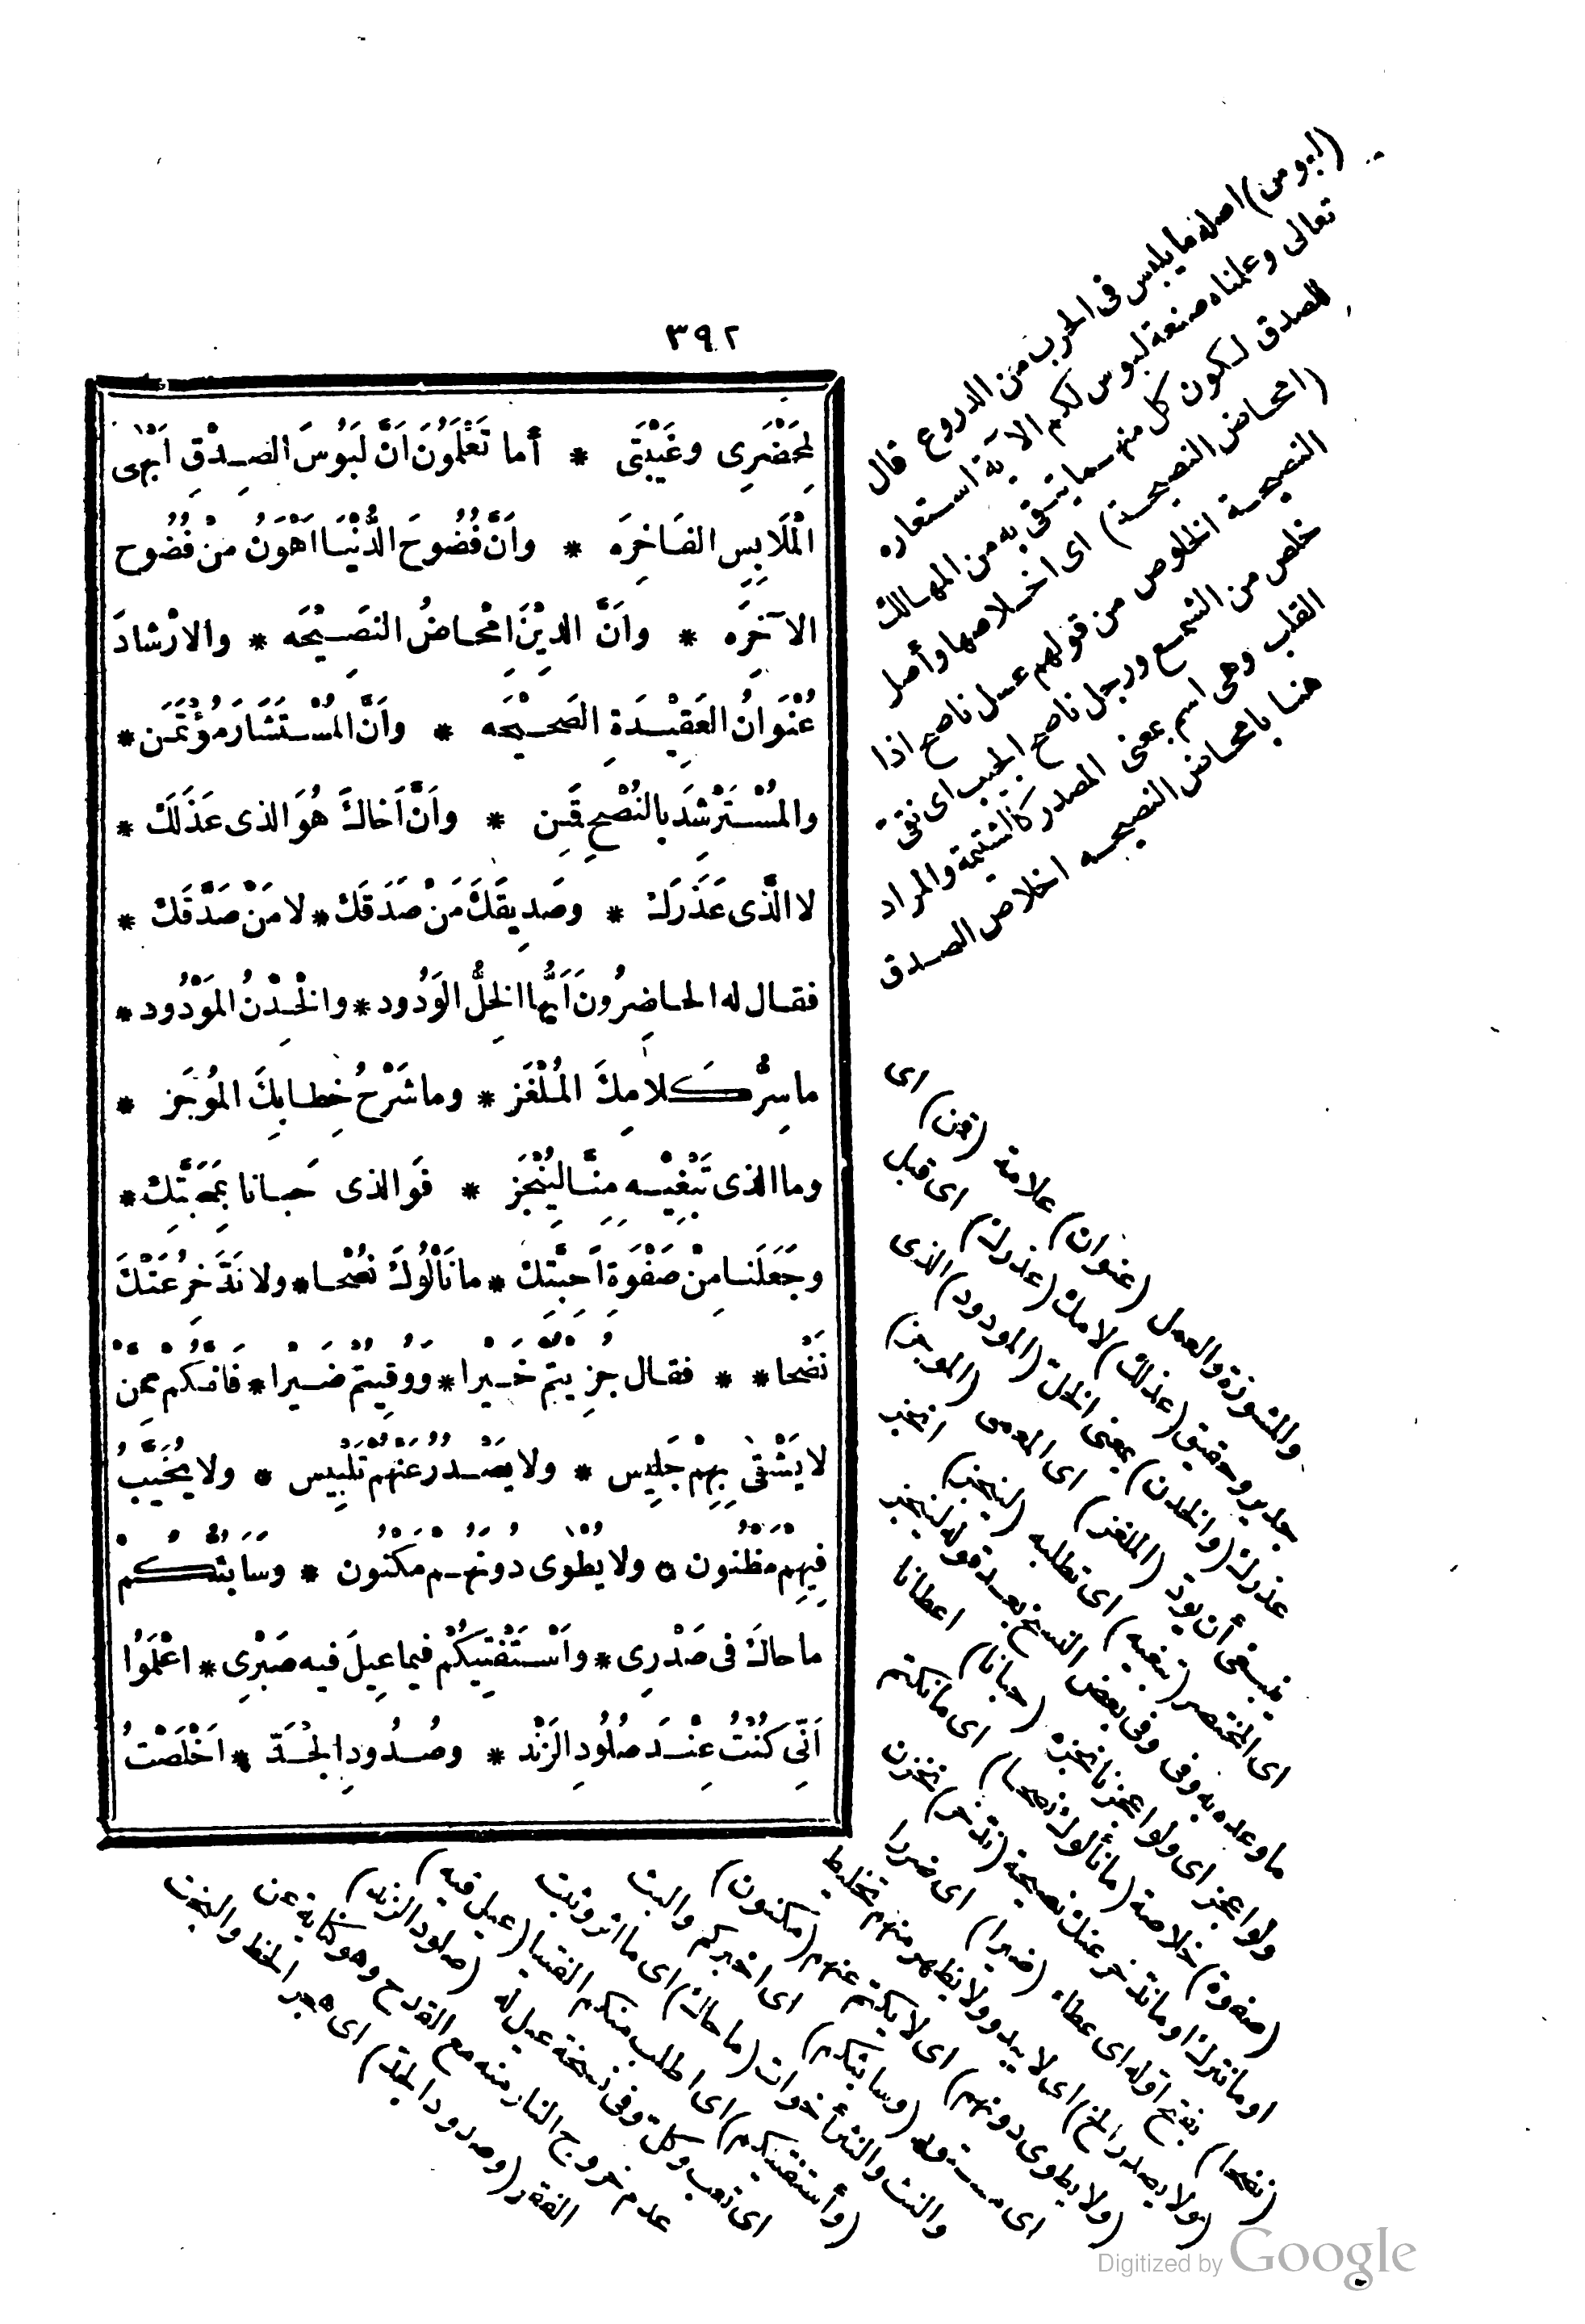 ٣٩٢
لِمَحْضَرِى وغَيْبَتِى * أما تَعْلَمُونَ اَنَّ لَبُوسَ الصِدْقِ اَبْهٰى
الْمَلَابِسِ الفَاخِرَه * واَنَّ فُضُوحَ الدُّنْيَا اَهْوَنُ مِنْ فُضُوح
الآخِرَه * واَنَّ الدِيْنَ اِمْحاضُ النَصِيْحَه * والارْشادَ
عُنْوَانُ العَقِيْدَةِ الصَحِيْحَه * واَنَّ المُسْتَشَارَ مُؤْتَمَن *
والمُسْتَرْشِدَ بالنُصْحِ قَمِن * واَنَّ اَخاكَ هُوَ الذى عَذَلَكْ *
لا الَّذى عَذَرَكْ * وصَدِيقَكَ مَنْ صَدَقَكْ * لا مَنْ صَدَّقَكْ *
فقال له الحاضِرُونَ اَيُّها الخِلُّ الوَدُود * والخِدْنُ المَوْدُود *
ماسِرُّ كَلامِكَ المُلْغَز * وما شَرْحُ خِطابِكَ المُوْجَز *
وما الذى تَبْغِيْهِ مِنَّا لِيُنْجَز * فَوَ الذى حَبانا بِمَحَبَّتِكْ *
وجَعَلَنا مِنْ صَفْوَةِ اَحِبَّتِكْ * ما نَأْلُوكَ نُصْحا * ولا نَدَّخِرُ عَنْكَ
نَضْحا * * فقال جُزِيْتُمْ خَيْرا * ووُقِيتُمْ ضَيْرا * فَاِنَّكُمْ مِمَّنْ
لا يَشْقٰى بِهِمْ جَلِيْس * ولا يَصْدُرُ عَنْهُمْ تَلْبِيْس * ولا يُخَيَّبُ
فِيهِمْ مَظْنُون * ولا يُطْوٰى دُونَهُمْ مَكْنُون * وسَاَبُثُّكُمْ
ما حاكَ فى صَدْرِى * واَسْتَفْتِيكُمْ فيما عِيلَ فيه صَبْرِى * اعْلَمُوا
اَنِّى كُنْتُ عِنْدَ صُلُودِ الزَنْد * وصُدُودِ الجَدّ * اَخْلَصْتُ
(لبوس) اصله ما يلبس فى الحرب من الدروع قال
تعالى وعلمناه صنعة لبوس لكم الآية استعاره
للصدق لكون كل منهما يتقى به من المهالك
(امحاض النصيحة) اى اخلاصها وأصل
النصيحة الخلوص من قولهم عسل ناصح اذا
خلص من الشمع ورجل ناصح الجيب اى نقى
القلب وهى اسم بمعنى المصدر كالشتيمة والمراد
هنا بامحاض النصيحه اخلاص الصدق
والمشورة والعمل (عنوان) علامة (قمن) اى
جدير وحقيق (عذلك) لامك (عذرك) اى قبل
عذرك (والخدن) بمعنى الخلّ (المودود) الذى
ينبغى أن يودّ (الملغز) اى المعمى (الموجز)
اى المختصر (تبغيه) اى تطلبه (لينجز) انجز
ما وعده به وفى بعض النسخ بعد قوله لينجز
ولو اعجز اى ولو اعجزنا نجزه (حبانا) اعطانا
(صفوة) خلاصة (ما نألوك نصحا) اى ما نكتم
او ما نترك او ما ندّخر عنك نصيحة (ندّخر) نخزن
(نضحا) بفتح اوله اى عطاء (ضيرا) اى ضررا
(ولا يصدر الخ) اى لا يبدو ولا يظهر منهم تخليط
(ولا يطوى دونهم) اى لا يكتم عنهم (مكنون)
اى مستور (وسابثكم) اى اخبركم والبث
والنث والنثر أخوات (ما حاك) اى ما اثر وثبت
(وأستفتيكم) اى اطلب منكم الفتيا (عيل فيه)
اى تعب وكلّ وفى نسخة عيل له (صلود الزند)
عدم خروج النار منه مع القدح وهو كناية عن
الفقر (وصدود الجدّ) اى هجر الحظ والبخت
Digitized by Google